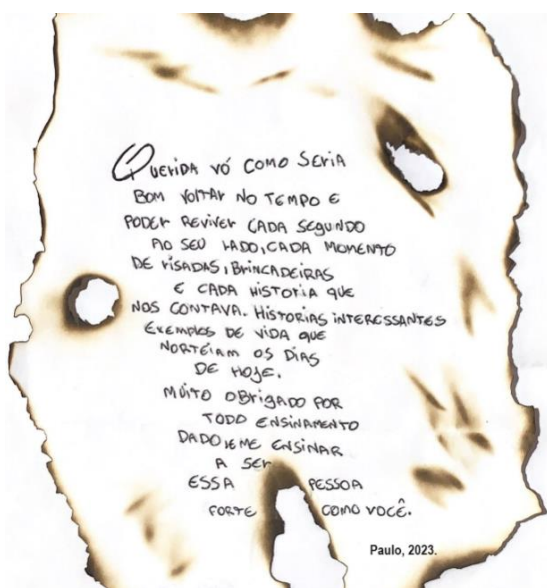 QUERIDA VÓ COMO SERIA
BOM VOLTAR NO TEMPO E
PODER REVIVER CADA SEGUNDO
AO SEU LADO, CADA MOMENTO
DE RISADAS, BRINCADEIRAS
E CADA HISTORIA QUE
NOS CONTAVA. HISTORIAS INTERESSANTES
EXEMPLOS DE VIDA QUE
NORTEIAM OS DIAS
DE HOJE.
MUITO OBRIGADO POR
TODO ENSINAMENTO
DADO, E ME ENSINAR
A SER
ESSA PESSOA
FORTE COMO VOCÊ.
Paulo, 2023.